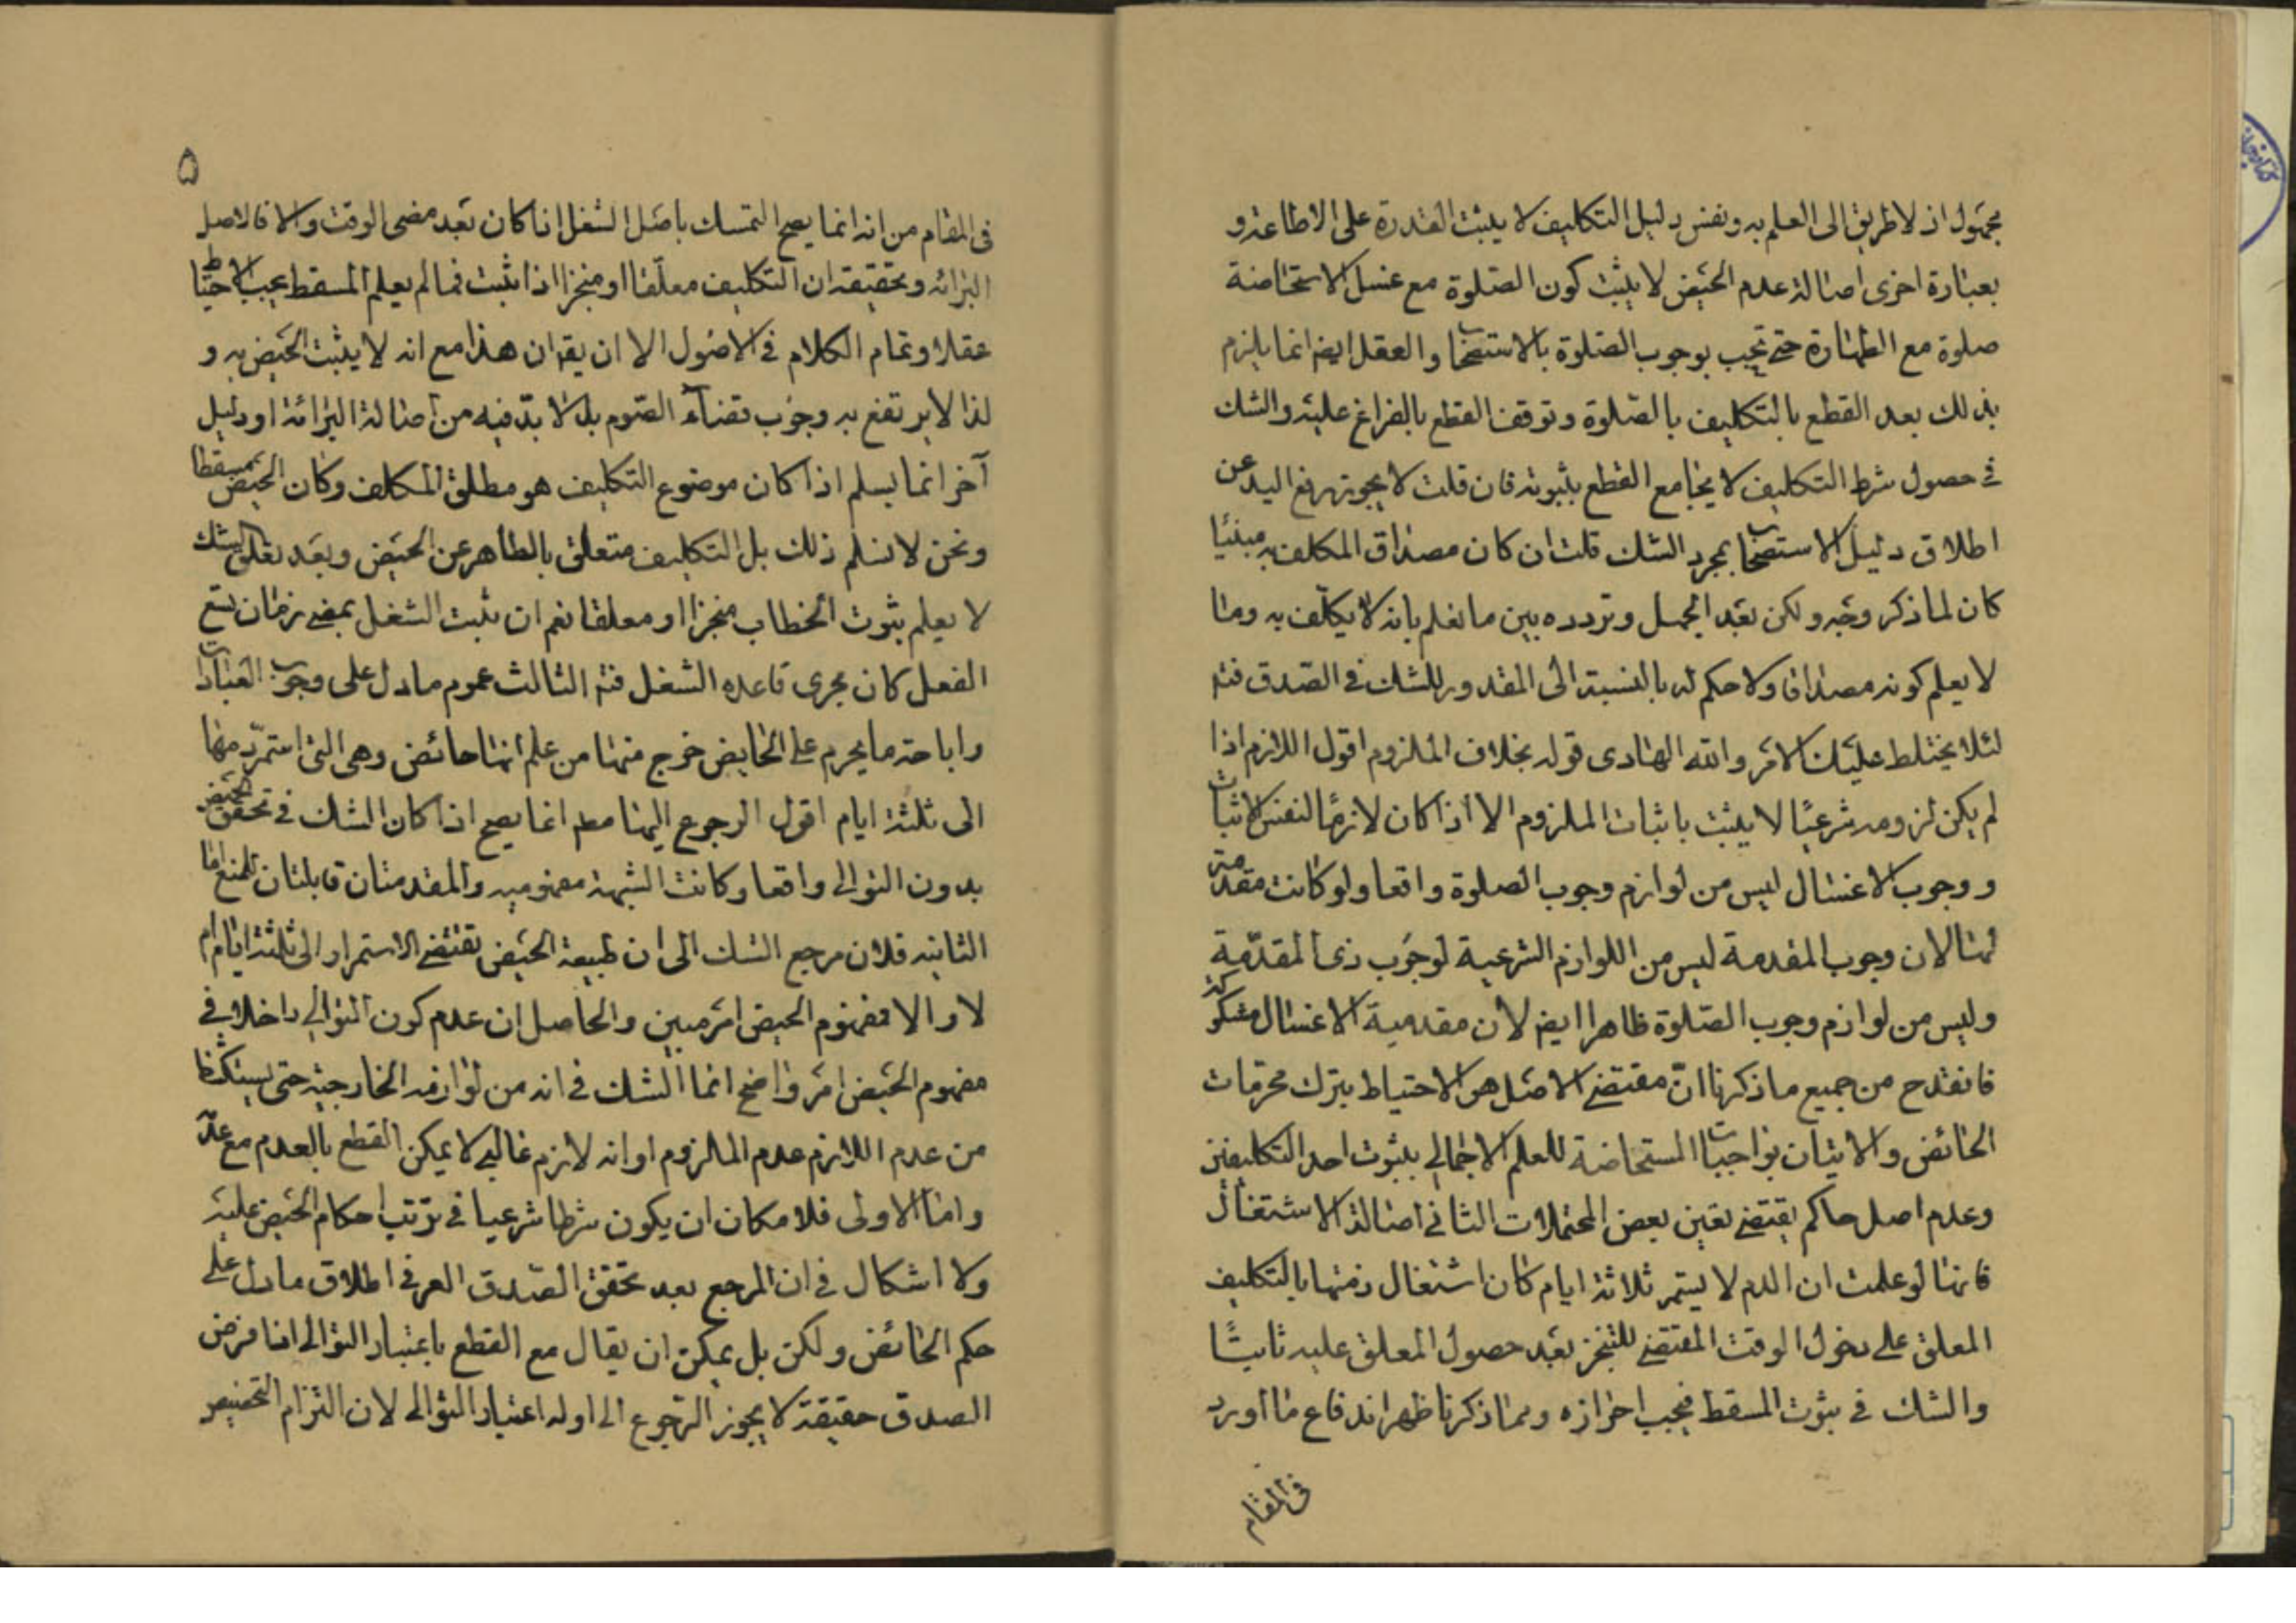 مجهول اذ لا طريق الى العلم به ونفس دليل التكليف لا يثبت القدرة على الاطاعة و
بعبارة اخرى اصالة عدم الحيض لا يثبت كون الصلوة مع غسل الاستحاضة
صلوة مع الطهارة حتى تجب بوجوب الصلوة بالاستصحاب والعقل ايضا انما يلزم
بذلك بعد القطع بالتكليف بالصلوة وتوقف القطع بالفراغ عليه والشك
في حصول شرط التكليف لا يجامع القطع بثبوته فان قلت لا يجوز رفع اليد عن
اطلاق دليل الاستصحاب بمجرد الشك قلت ان كان مصداق المكلف به مبنيا
كان لما ذكر وجه ولكن بعد الجمل وتردده بين ما نعلم بانه لا يكلف به وما
لا يعلم كونه مصداقا ولا حكم له بالنسبة الى المقدور للشك في الصدق فتد
لئلا يختلط عليك الامر والله الهادى قوله بخلاف الملزوم اقول اللازم اذا
لم يكن لزومه شرعيا لا يثبت باثبات الملزوم الا اذا كان لازما لنفس الاثبات
ووجوب الاغتسال ليس من لوازم وجوب الصلوة واقعا ولو كانت مقدمة
لها لان وجوب المقدمة ليس من اللوازم الشرعية لوجوب ذى المقدمة
وليس من لوازم وجوب الصلوة ظاهرا ايضا لان مقدمية الاغتسال مشكوكة
فانقدح من جميع ما ذكرنا انّ مقتضى الاصل هو الاحتياط بترك محرمات
الحائض والاتيان بواجبات المستحاضة للعلم الاجمالى بثبوت احد التكليفين
وعدم اصل حاكم يقتضى تعين بعض المحتملات الثانى اصالة الاشتغال
فانها لو علمت ان الدم لا يستمر ثلاثة ايام كان اشتغال ذمتها بالتكليف
المعلق على دخول الوقت المقتضى للتنجز بعد حصول المعلق عليه ثابتا
والشك في ثبوت المسقط فيجب احرازه ومما ذكرنا ظهر اندفاع ما اورد
فى المقام
۵
فى المقام من انه انما يصح التمسك باصل الشغل اذا كان بعد مضى الوقت والا فالاصل
البرائة وتحقيقه ان التكليف معلقا او منجزا اذا ثبت فما لم يعلم المسقط يجب الاحتياط
عقلا وتمام الكلام في الاصول الا ان يق ان هذا مع انه لا يثبت الحيض به و
لذا لا يرتفع به وجوب قضاء الصوم بل لا بدّ فيه من اصالة البرائة او دليل
آخر انما يسلم اذا كان موضوع التكليف هو مطلق المكلف وكان الحيض مسقطا
ونحن لا نسلم ذلك بل التكليف متعلق بالطاهر عن الحيض وبعد تعلق الشك
لا يعلم بثبوت الخطاب منجزا او معلقا نعم ان ثبت الشغل بمضى زمان يسع
الفعل كان يجرى قاعده الشغل فتد الثالث عموم ما دل على وجوب العبادات
واباحة ما يحرم على الحايض خرج منها من علم انها حائض وهى التى استمرّ دمها
الى ثلثة ايام اقول الرجوع اليها مط انما يصح اذا كان الشك في تحقق الحيض
بدون التوالى واقعا وكانت الشبهة مفهوميه والمقدمتان قابلتان للمنع اما
الثانيه فلان مرجع الشك الى ان طبيعة الحيض تقتضى الاستمرار الى ثلثة ايام ام
لا والا فمفهوم الحيض امر مبين والحاصل ان عدم كون التوالى داخلا في
مفهوم الحيض امر واضح انما الشك في انه من لوازمه الخارجية حتى يستكشف
من عدم اللازم عدم الملزوم او انه لازم غالبى لا يمكن القطع بالعدم مع عدمه
واما الاولى فلامكان ان يكون شرطا شرعيا في ترتب احكام الحيض عليه
ولا اشكال في ان المرجع بعد تحقق الصدق العرفى اطلاق ما دل على
حكم الحائض ولكن بل يمكن ان يقال مع القطع باعتبار التوالى اذا فرض
الصدق حقيقة لا يجوز الرجوع الى اوله اعتبار التوالى لان التزام التخصيص